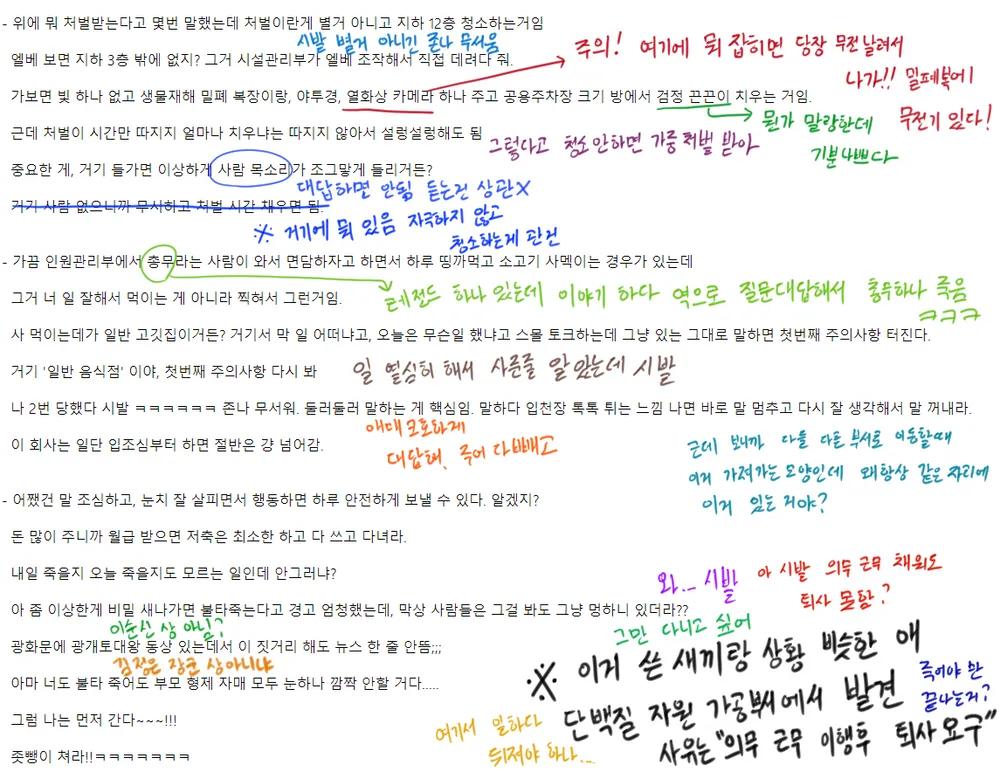 - 위에 뭐 처벌받는다고 몇번 말했는데 처벌이란게 별거 아니고 지하 12층 청소하는거임
시발 별거 아니긴 존나 무서움
주의! 여기에 뭐 잡히면 당장 무전 날려서
엘베 보면 지하 3층 밖에 없지? 그거 시설관리부가 엘베 조작해서 직접 데려다 줘.
나가!! 밀폐복에
가보면 빛 하나 없고 생물재해 밀폐 복장이랑, 야투경, 열화상 카메라 하나 주고 공용주차장 크기 방에서 검정 끈끈이 치우는 거임.
무전기 있다!
뭔가 말랑한데
기분나쁘다
근데 처벌이 시간만 따지지 얼마나 치우냐는 따지지 않아서 설렁설렁해도 됨
그렇다고 청소 안하면 가중 처벌 받아
중요한 게, 거기 들가면 이상하게 사람 목소리가 조그맣게 들리거든?
대답하면 안됨 듣는건 상관X
거기 사람 없으니까 무시하고 처벌 시간 채우면 됨.
※ 거기에 뭐 있음 자극하지 않고
청소하는게 관건
- 가끔 인원관리부에서 총무라는 사람이 와서 면담하자고 하면서 하루 띵까먹고 소고기 사멕이는 경우가 있는데
레전드 하나 있는데 이야기 하다 역으로 질문대답해서 총무하나 죽음
ㅋㅋㅋ
그거 너 일 잘해서 먹이는 게 아니라 찍혀서 그런거임.
사 먹이는데가 일반 고깃집이거든? 거기서 막 일 어떠냐고, 오늘은 무슨일 했냐고 스몰 토크하는데 그냥 있는 그대로 말하면 첫번째 주의사항 터진다.
거기 '일반 음식점' 이야, 첫번째 주의사항 다시 봐
일 열심히 해서 사준줄 알았는데 시발
나 2번 당했다 시발 ㅋㅋㅋㅋㅋㅋ 존나 무서워. 둘러둘러 말하는 게 핵심임. 말하다 입천장 톡톡 튀는 느낌 나면 바로 말 멈추고 다시 잘 생각해서 말 꺼내라.
애매모호하게
대답해, 주어 다빼고
이 회사는 일단 입조심부터 하면 절반은 걍 넘어감.
근데 보니까 다들 다른 부서로 이동할때
이거 가져가는 모양인데 왜항상 같은 자리에
이거 있는 거야?
- 어쨌건 말 조심하고, 눈치 잘 살피면서 행동하면 하루 안전하게 보낼 수 있다. 알겠지?
돈 많이 주니까 월급 받으면 저축은 최소한 하고 다 쓰고 다녀라.
내일 죽을지 오늘 죽을지도 모르는 일인데 안그러냐?
와... 시발
아 시발 의무 근무 채워도
퇴사 못함?
아 좀 이상한게 비밀 새나가면 불타죽는다고 경고 엄청했는데, 막상 사람들은 그걸 봐도 그냥 멍하니 있더라??
이순신 상 아님?
그만 다니고 싶어
광화문에 광개토대왕 동상 있는데서 이 짓거리 해도 뉴스 한 줄 안뜸;;;
김정은 장군 상아니냐
※ 이거 쓴 새끼랑 상황 비슷한 애
단백질 자원 가공부서에서 발견
사유는 "의무 근무 이행후 퇴사 요구"
죽어야 만
끝나는거?
아마 너도 불타 죽어도 부모 형제 자매 모두 눈하나 깜짝 안할 거다.....
그럼 나는 먼저 간다~~~!!!
여기서 일하다
뒤져야 하나...
좃뺑이 쳐라!!ㅋㅋㅋㅋㅋㅋㅋ